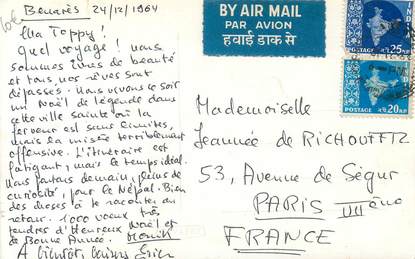 Benarès 24/12/1964
Ma Toppy!
Quel voyage! Nous
sommes ivres de beauté
et tous nos rêves sont
dépassés. Nous vivons ce soir
un Noël de légende dans
cette ville sainte où la
ferveur est sans limites,
mais la misère terriblement
offensive. L'itinéraire est
fatigant, mais le temps idéal.
Nous partons demain, pleins de
curiosité, pour le Népal. Bien
des choses à te raconter au
retour. 1000 voeux très
tendres d'Heureux Noël et
de Bonne Année.
A bientôt, baisers
BY AIR MAIL
PAR AVION
हवाई डाक से
POSTAGE 25 N.P.
POSTAGE 20 N.P.
Mademoiselle
Jeannée de RICHOUFFTZ
53, Avenue de Ségur
PARIS VIIème
FRANCE